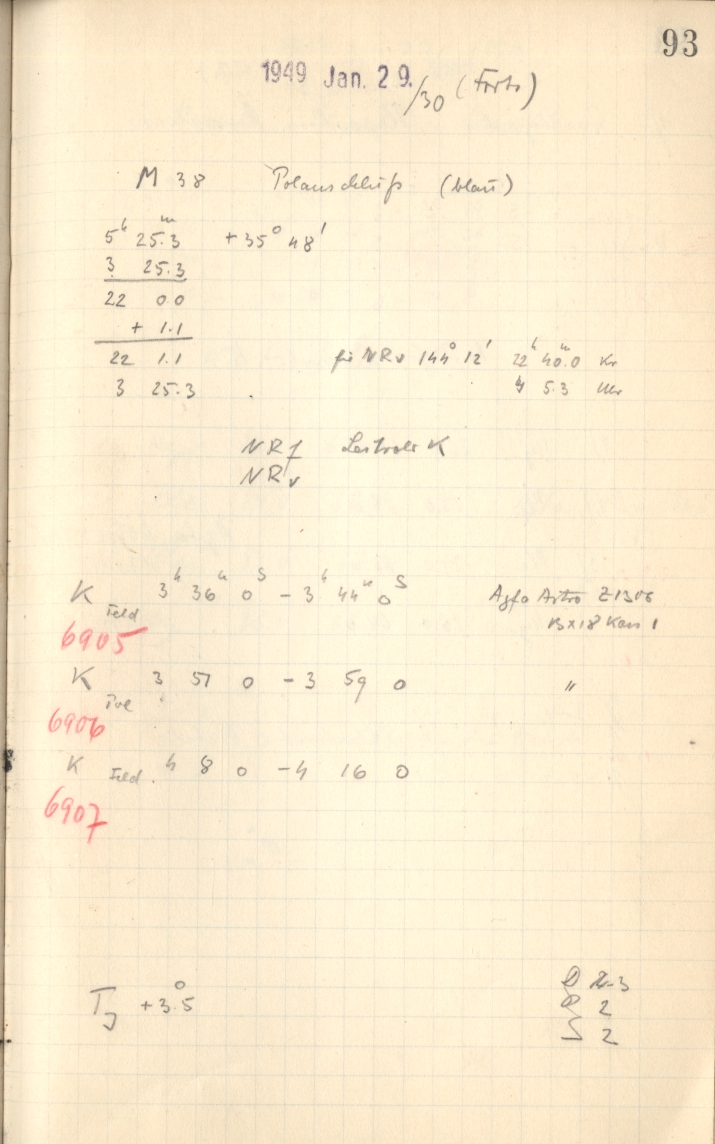 93
1949 Jan. 29./30 (Forts)
M 38 Polanschluß (blau)
5ʰ 25.3ᵐ +35° 48'
3 25.3
22 00
+ 1.1
22 1.1 für NRv 144° 12' 22ʰ 40.0ᵐ Kr
3 25.3 4 5.3 Uhr
NRf K
NRv
K Feld 3ʰ 36ᵐ 0ˢ - 3ʰ 44ᵐ 0ˢ Agfa Astro Z1306
6905 13x18 Kass 1
K Pol 3 57 0 - 3 59 0 "
6906
K Feld. 4 8 0 - 4 16 0
6907
TJ +3.5° D 2-3
2
S 2